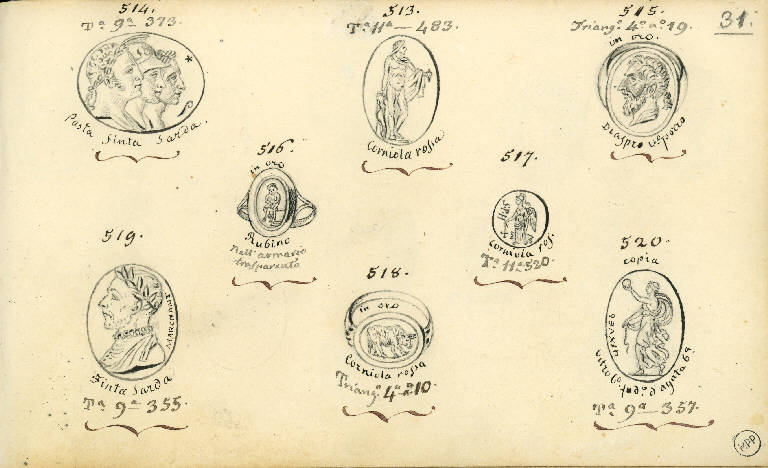 31.
514.
Tª 9ª 373.
Pasta finta Sarda.
513.
Tª 11ª — 483.
Corniola rossa
515.
Triangº 4º nº 19.
in oro.
Diaspro
516.
in oro
Rubino
Nell'armario
trasparente
517.
Corniola ros.
Tª 11ª 520.
519.
Finta Sarda
Tª 9ª 355.
518.
in oro
Corniola rossa
Triangº 4º nº 10.
520.
copia
Vitro
d'agata 69
Tª 9ª — 357.
MPP